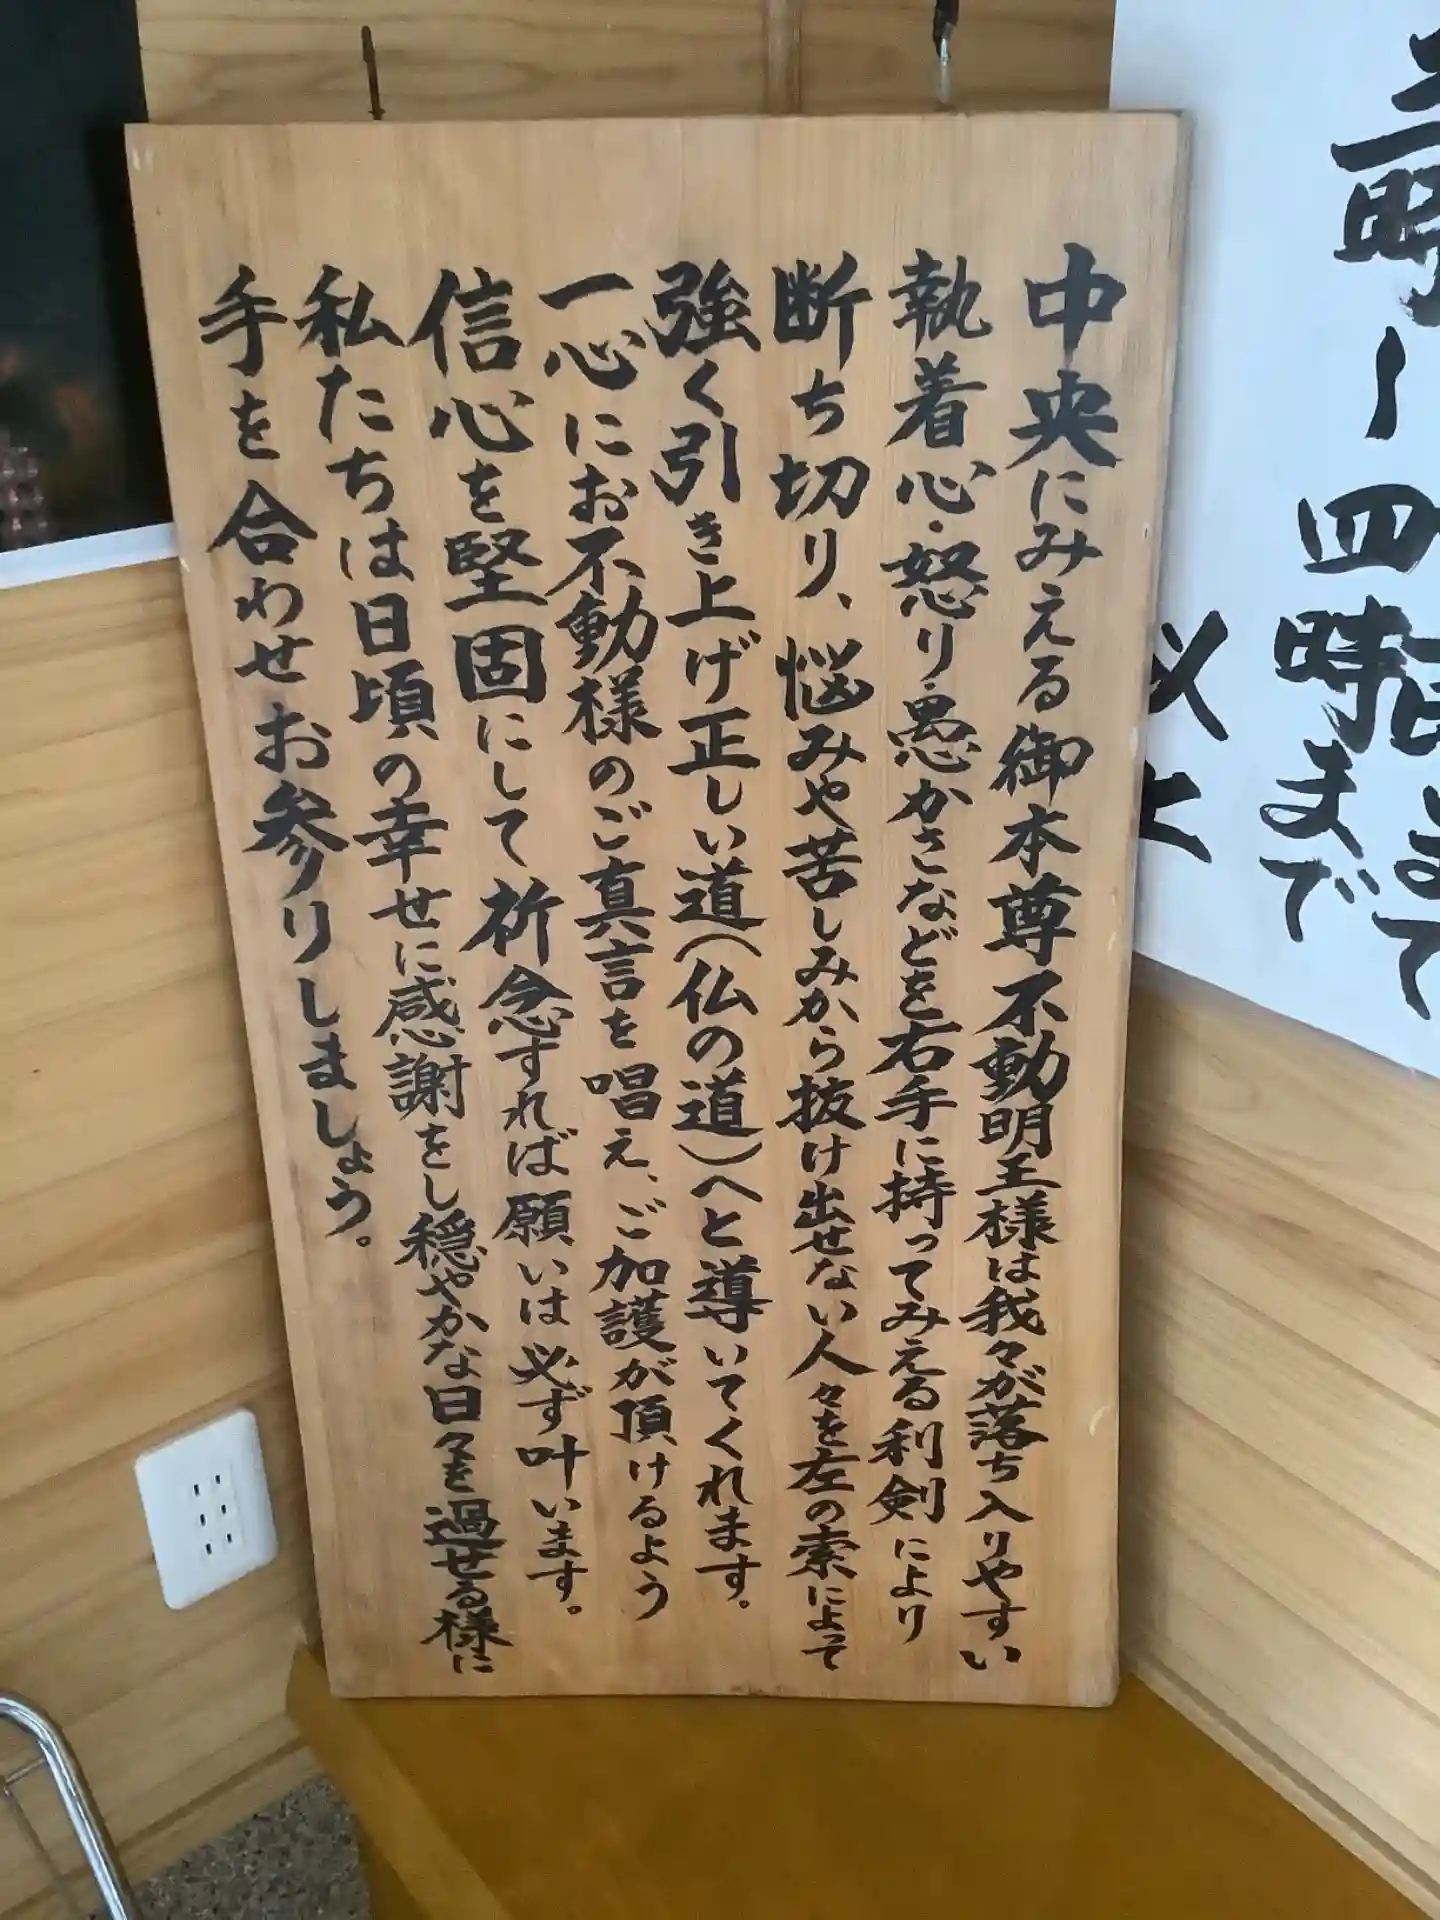 中央にみえる御本尊不動明王様は我々が落ち入りやすい
執着心・怒り・愚かさなどを右手に持ってみえる利剣により
断ち切り、悩みや苦しみから抜け出せない人々を左の索によって
強く引き上げ正しい道(仏の道)へと導いてくれます。
一心にお不動様のご真言を唱え、ご加護が頂けるよう
信心を堅固にして祈念すれば願いは必ず叶います。
私たちは日頃の幸せに感謝をし穏やかな日々を過せる様に
手を合わせお参りしましょう。
四時まで
以上